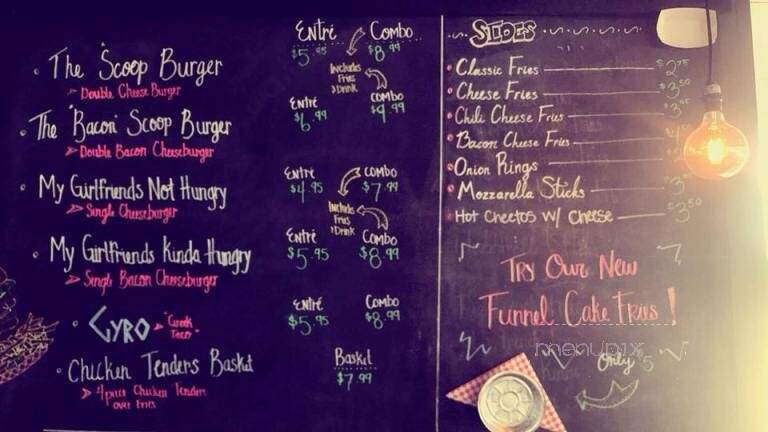 Entré Combo
The "Scoop Burger $5.95 $8.99
Double Cheese Burger
Includes
Fries
& Drink
Entré Combo
The "Bacon" Scoop Burger $6.99 $9.99
Double Bacon Cheeseburger
Entré Combo
My Girlfriends Not Hungry $4.95 $7.99
Single Cheeseburger
Includes
Fries
& Drink
Entré Combo
My Girlfriends Kinda Hungry $5.95 $8.99
Single Bacon Cheeseburger
Entré Combo
Gyro "Greek Taco" $5.95 $8.99
Chicken Tenders Basket Basket
$7.99
4 piece Chicken Tenders
over Fries
Sides
Classic Fries $2.75
Cheese Fries $3.50
Chili Cheese Fries
Bacon Cheese Fries
Onion Rings
Mozzarella Sticks
Hot Cheetos w/ Cheese $3.50
Try Our New
Funnel Cake Fries!
menupix
Only $5